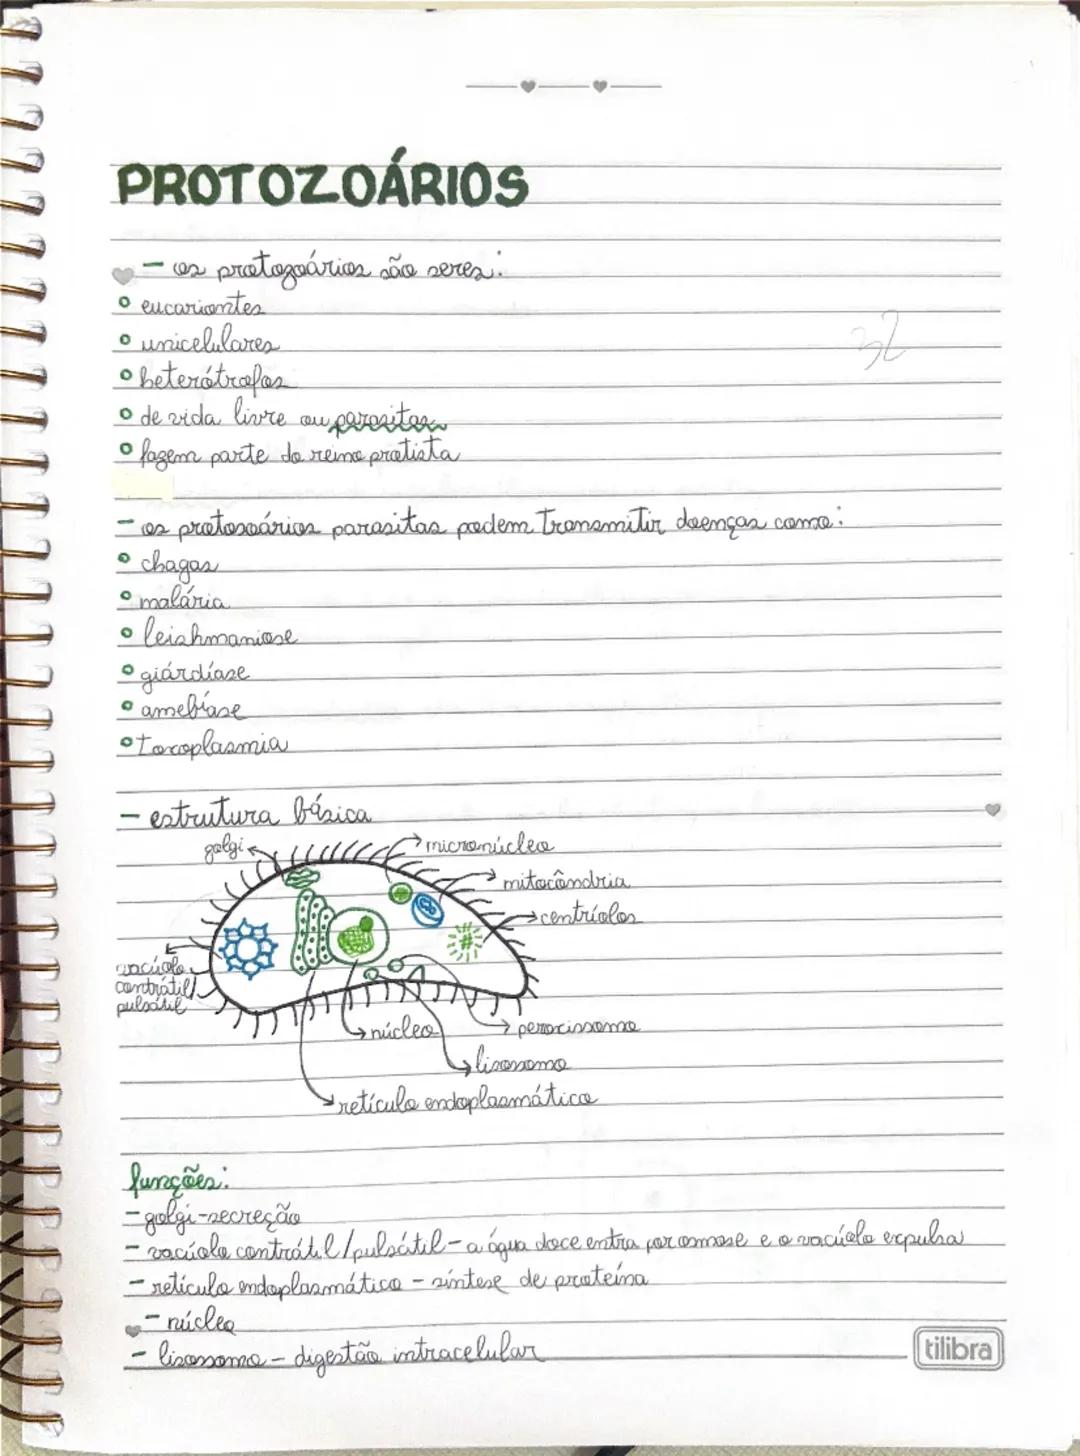 PROTOZOÁRIOS
- os protozoários são seres:
eucariontes
unicelulares
heterótrofos
de vida livre ou parasitas
fazem parte do reino protista
- os protozoários parasitas podem transmitir doenças como:
chagas
malária
leishmaniose
giárdíase
amebíase
toxoplasmia
- estrutura básica
golgi
micronúcleo
mitocôndria
centríolos
vacúolo
contrátil/
pulsátil
núcleo
peroxissomo
lisossomo
retículo endoplasmático
funções:
- golgi - secreção
- vacúolo contrátil/pulsátil - a água doce entra por osmose e o vacúolo expulsa
- retículo endoplasmático - síntese de proteína
- núcleo
- lisossomo - digestão intracelular
tilibra
32